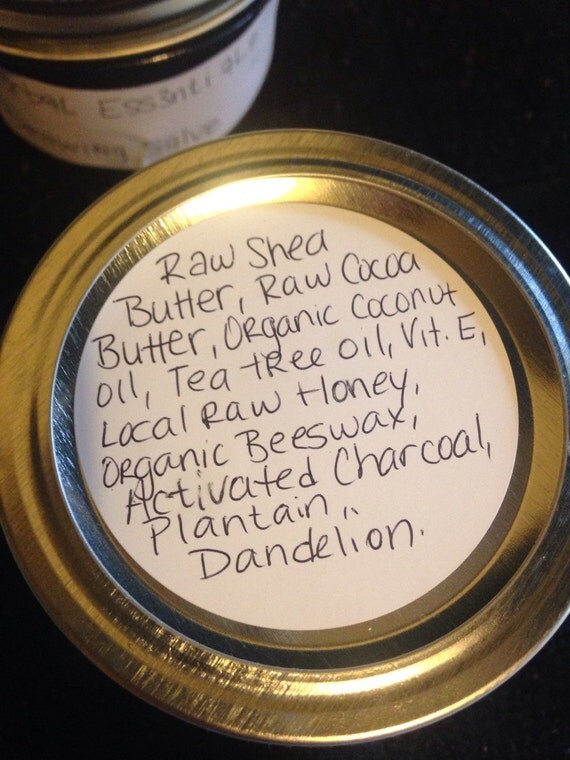 Essenti
salve
Raw Shea
Butter, Raw Cocoa
Butter, Organic Coconut
oil, Tea tree oil, Vit. E,
Local Raw Honey,
Organic Beeswax,
Activated Charcoal,
Plantain,
Dandelion.